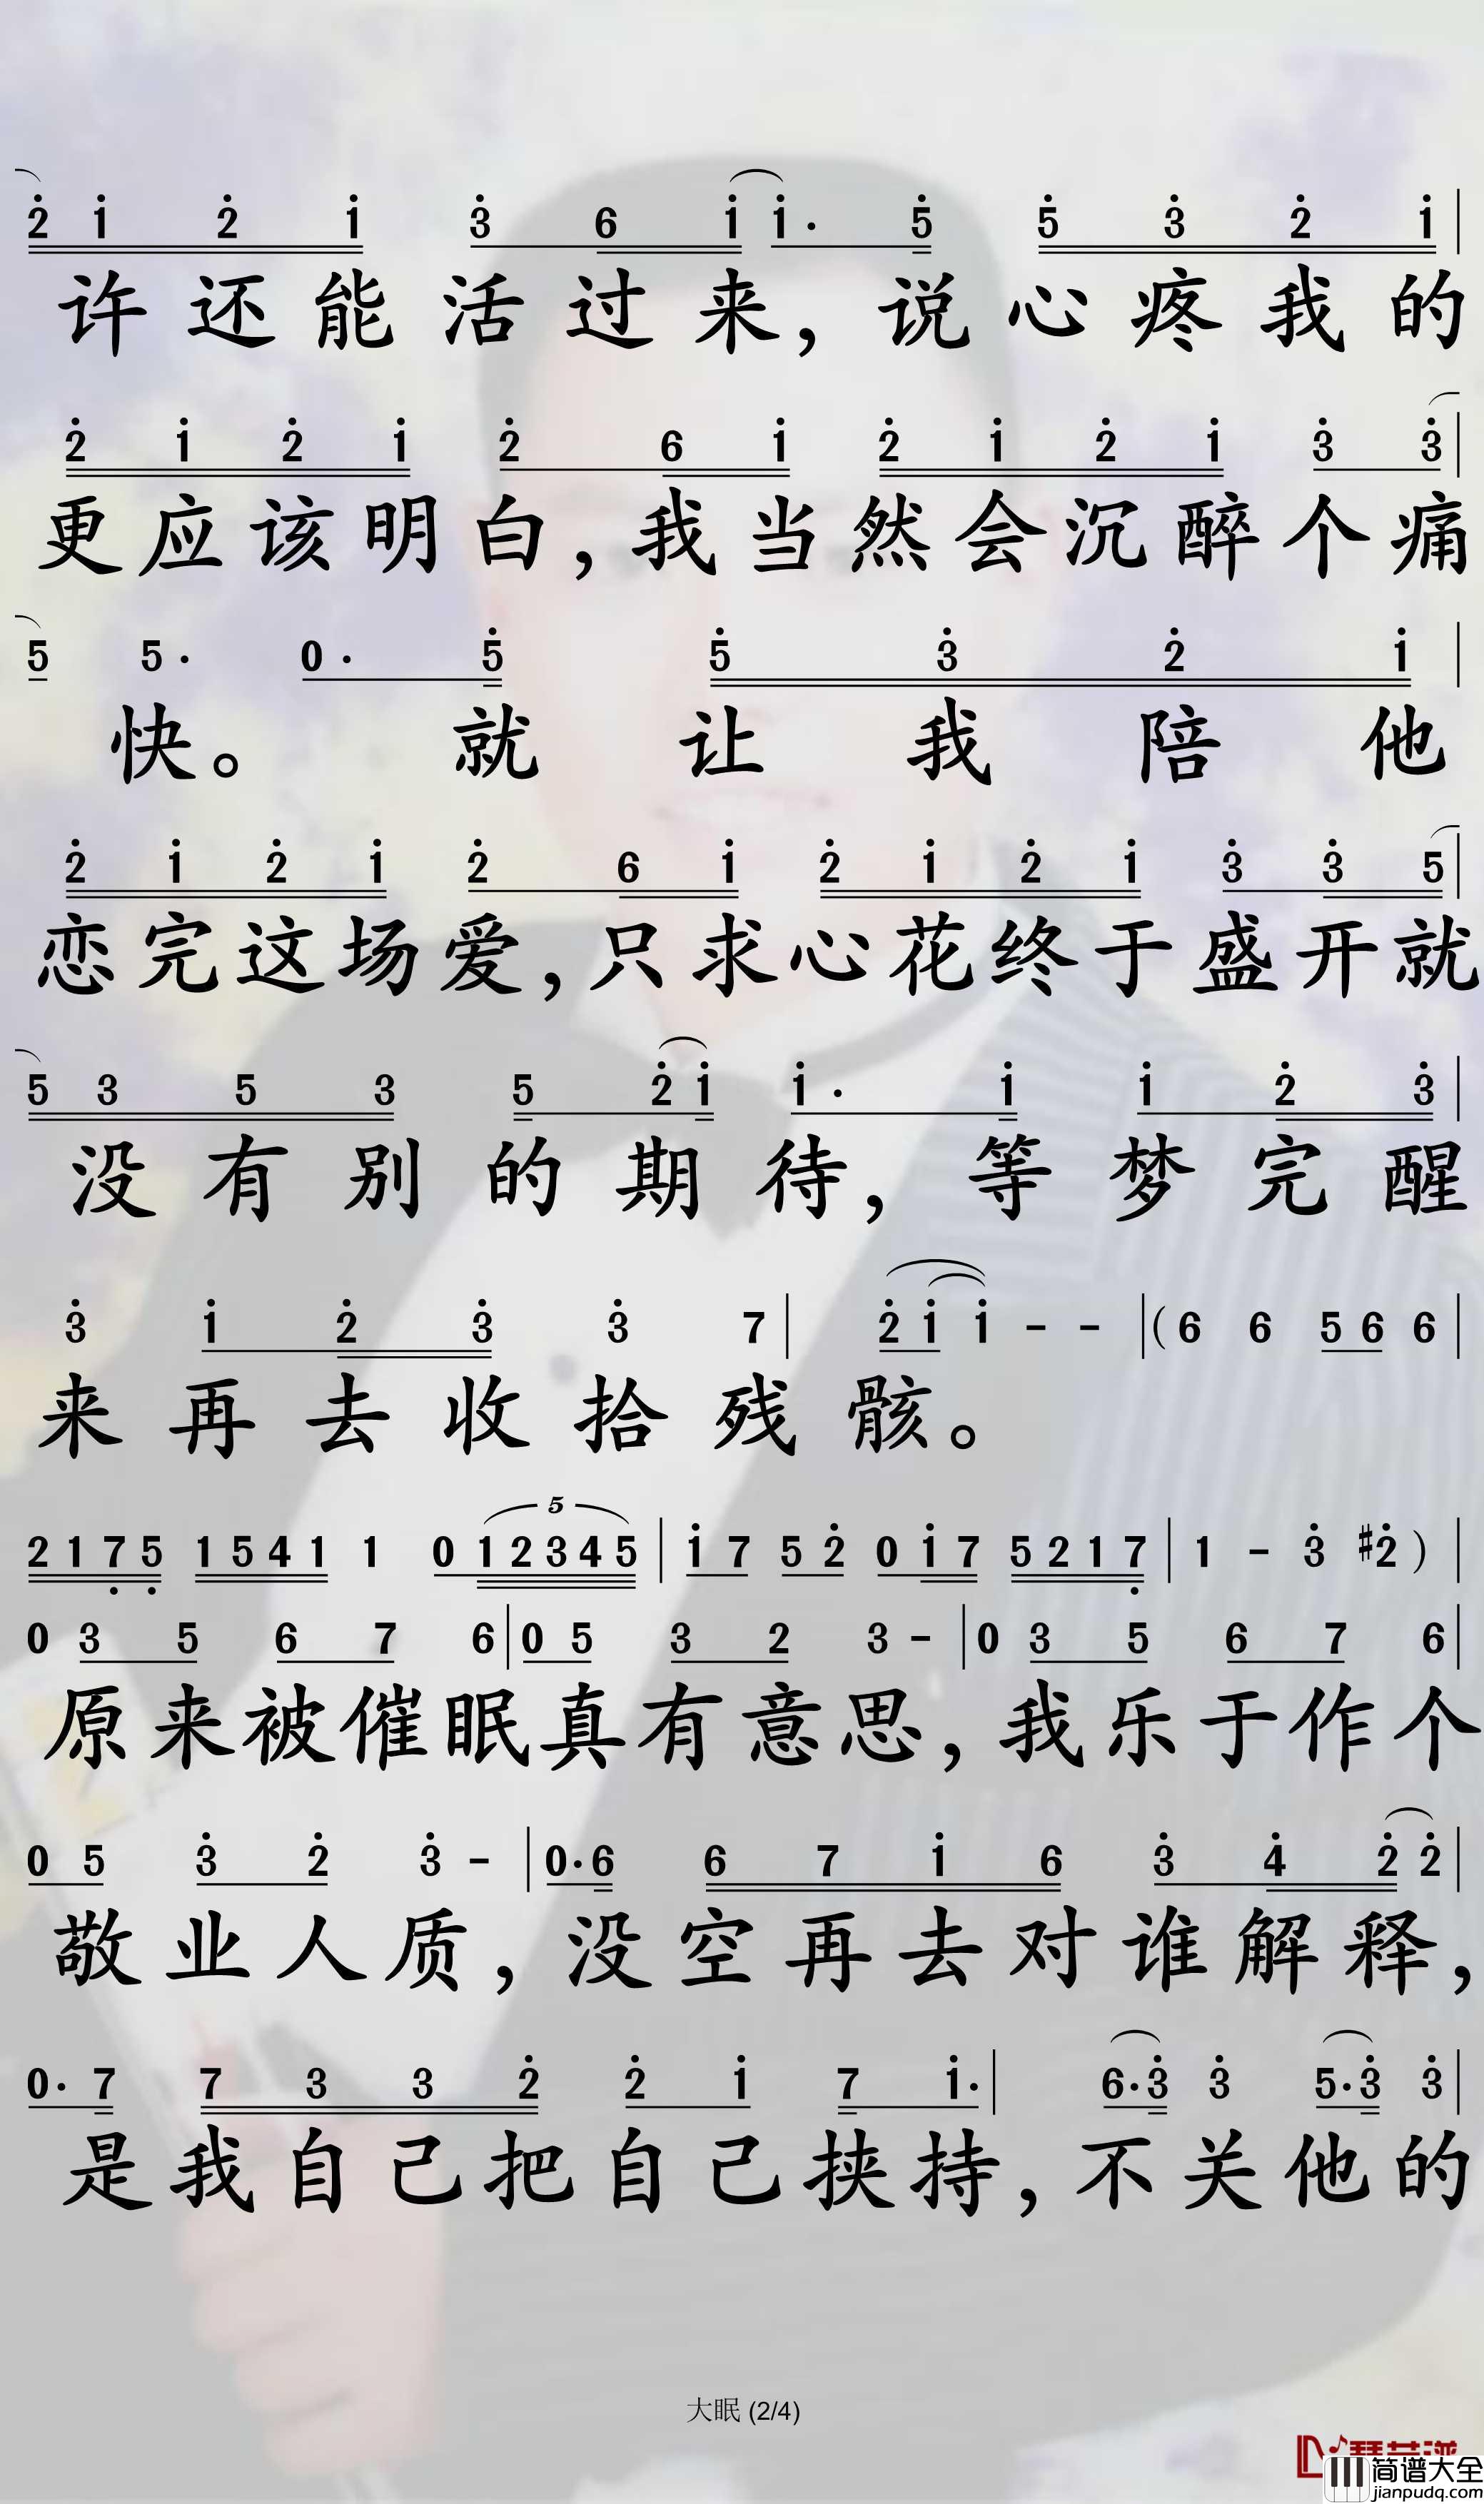 2̇ 1̇ 2̇ 1̇ 3̇ 6 1̇ 1̇· 5̇ 5̇ 3̇ 2̇ 1̇ |
许还能活过来，说心疼我的
2̇ 1̇ 2̇ 1̇ 2̇ 6 1̇ 2̇ 1̇ 2̇ 1̇ 3̇ 3̇ |
更应该明白，我当然会沉醉个痛
5 5· 0· 5̇ 5̇ 3̇ 2̇ 1̇ |
快。就让我陪他
2̇ 1̇ 2̇ 1̇ 2̇ 6 1̇ 2̇ 1̇ 2̇ 1̇ 3̇ 3̇ 5 |
恋完这场爱，只求心花终于盛开就
5 3 5 3 5 2̇ 1̇ 1̇· 1̇ 1̇ 2̇ 3̇ |
没有别的期待，等梦完醒
3̇ 1̇ 2̇ 3̇ 3̇ 7 | 2̇ 1̇ 1̇ - - | (6 6 5 6 6 |
来再去收拾残骸。
2 1 7̣ 5̣ 1 5 4 1 1 0 1 2 3 4 5 | 1̇ 7 5 2̇ 0 1̇ 7 5 2 1 7̣ | 1 - 3̇ #2̇ ) |
5
0 3 5 6 7 6 | 0 5 3 2 3 - | 0 3 5 6 7 6 |
原来被催眠真有意思，我乐于作个
0 5 3̇ 2̇ 3̇ - | 0· 6 6 7 1̇ 6 3̇ 4̇ 2̇ 2̇ |
敬业人质，没空再去对谁解释，
0· 7 7 3 3 2̇ 2̇ 1̇ 7 1̇· | 6· 3̇ 3̇ 5· 3̇ 3̇ |
是我自己把自己挟持，不关他的
大眠 (2/4)
简谱大全
jianpudq.com